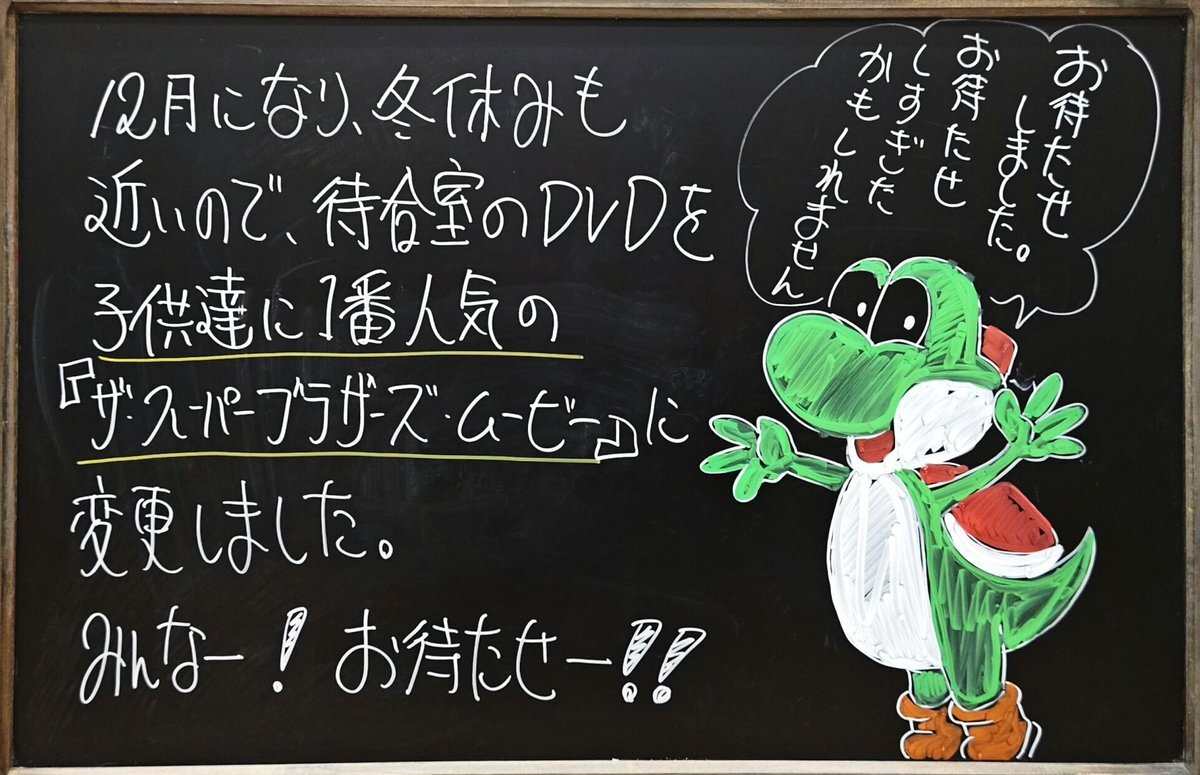 12月になり、冬休みも
近いので、待合室のDVDを
子供達に1番人気の
『ザ・スーパーブラザーズ・ムービー』に
変更しました。
みんなー！お待たせー!!
お待たせ
しました。
お待たせ
しすぎた
かもしれません